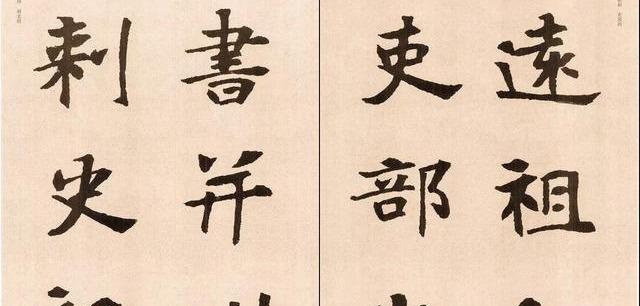 遠祖
吏部
書并
刺史